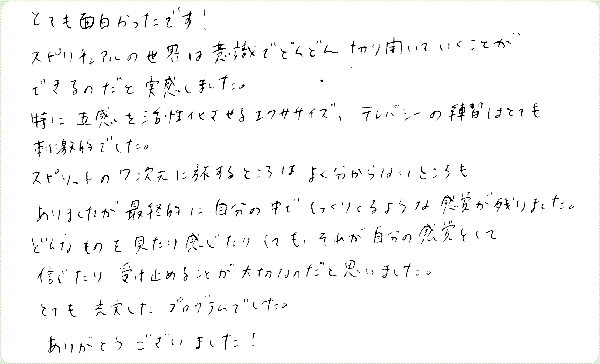 とても面白かったです!
スピリチュアルの世界は意識でどんどん切り開いていくことが
できるのだと実感しました。
特に五感を活性化させるエクササイズ、テレパシーの練習はとても
刺激的でした。
スピリットの7次元に旅するところはよく分からないところも
ありましたが最終的に自分の中でしっくりくるような感覚が残りました。
どんなものを見たり感じたりしても、それが自分の感覚として
信じたり受け止めることが大切なのだと思いました。
とても充実したプログラムでした。
ありがとうございました!